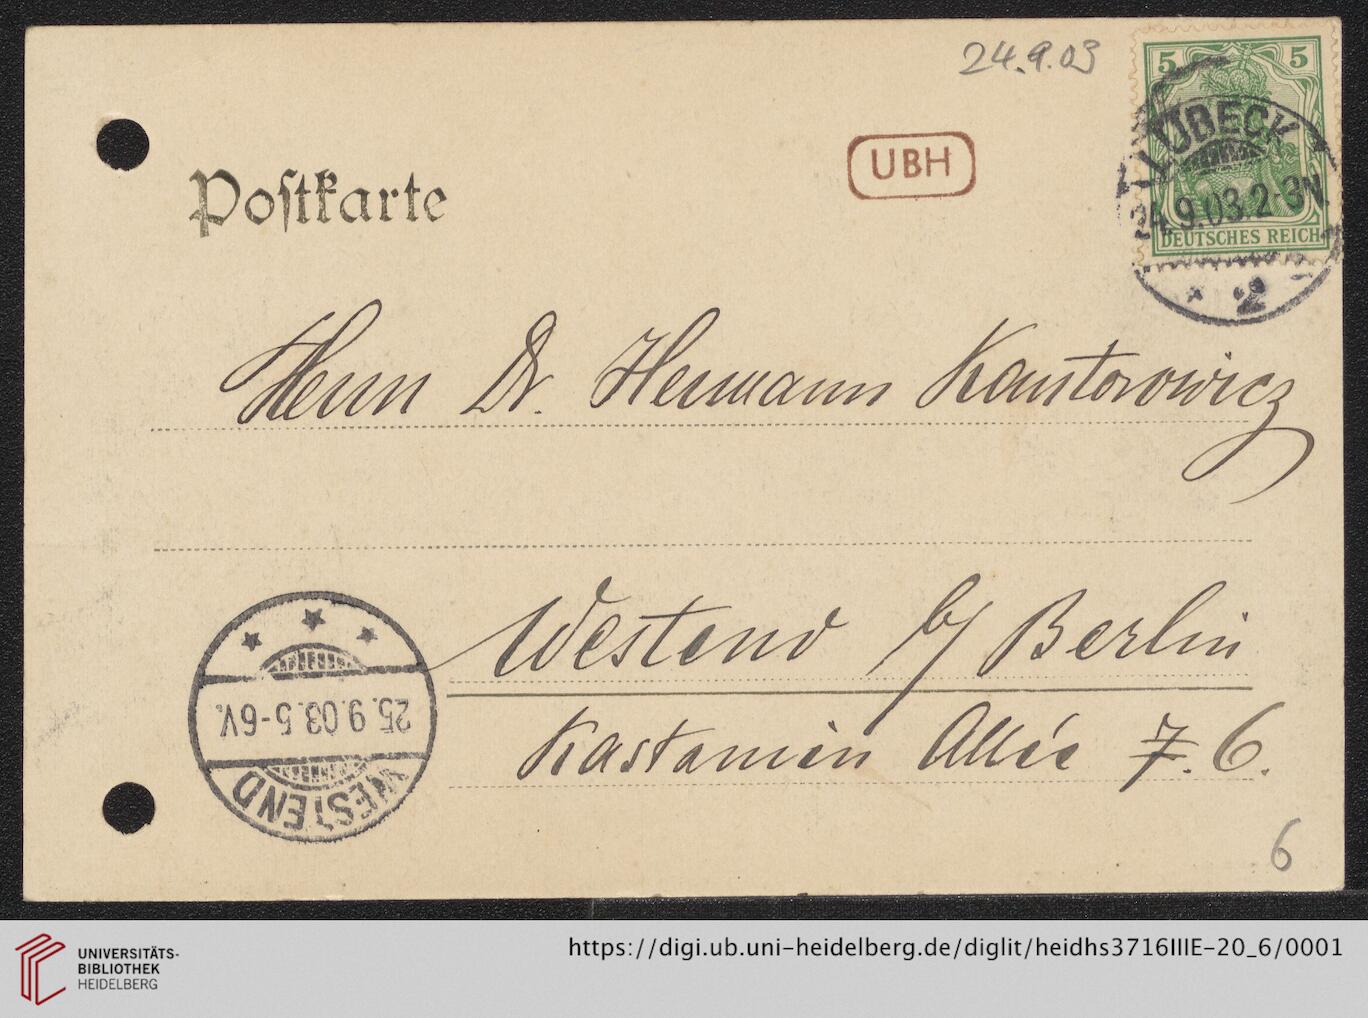 24.9.03
5 5
LÜBECK
24.9.03.2-3N
DEUTSCHES REICH
* 2
UBH
Postkarte
Herrn Dr. Hermann Kantorowicz
Westend b/ Berlin
Kastanien Allée 7. 6.
25.9.03.5-6V.
WESTEND
6
UNIVERSITÄTS-
BIBLIOTHEK
HEIDELBERG
https://digi.ub.uni-heidelberg.de/diglit/heidhs3716IIIE-20_6/0001